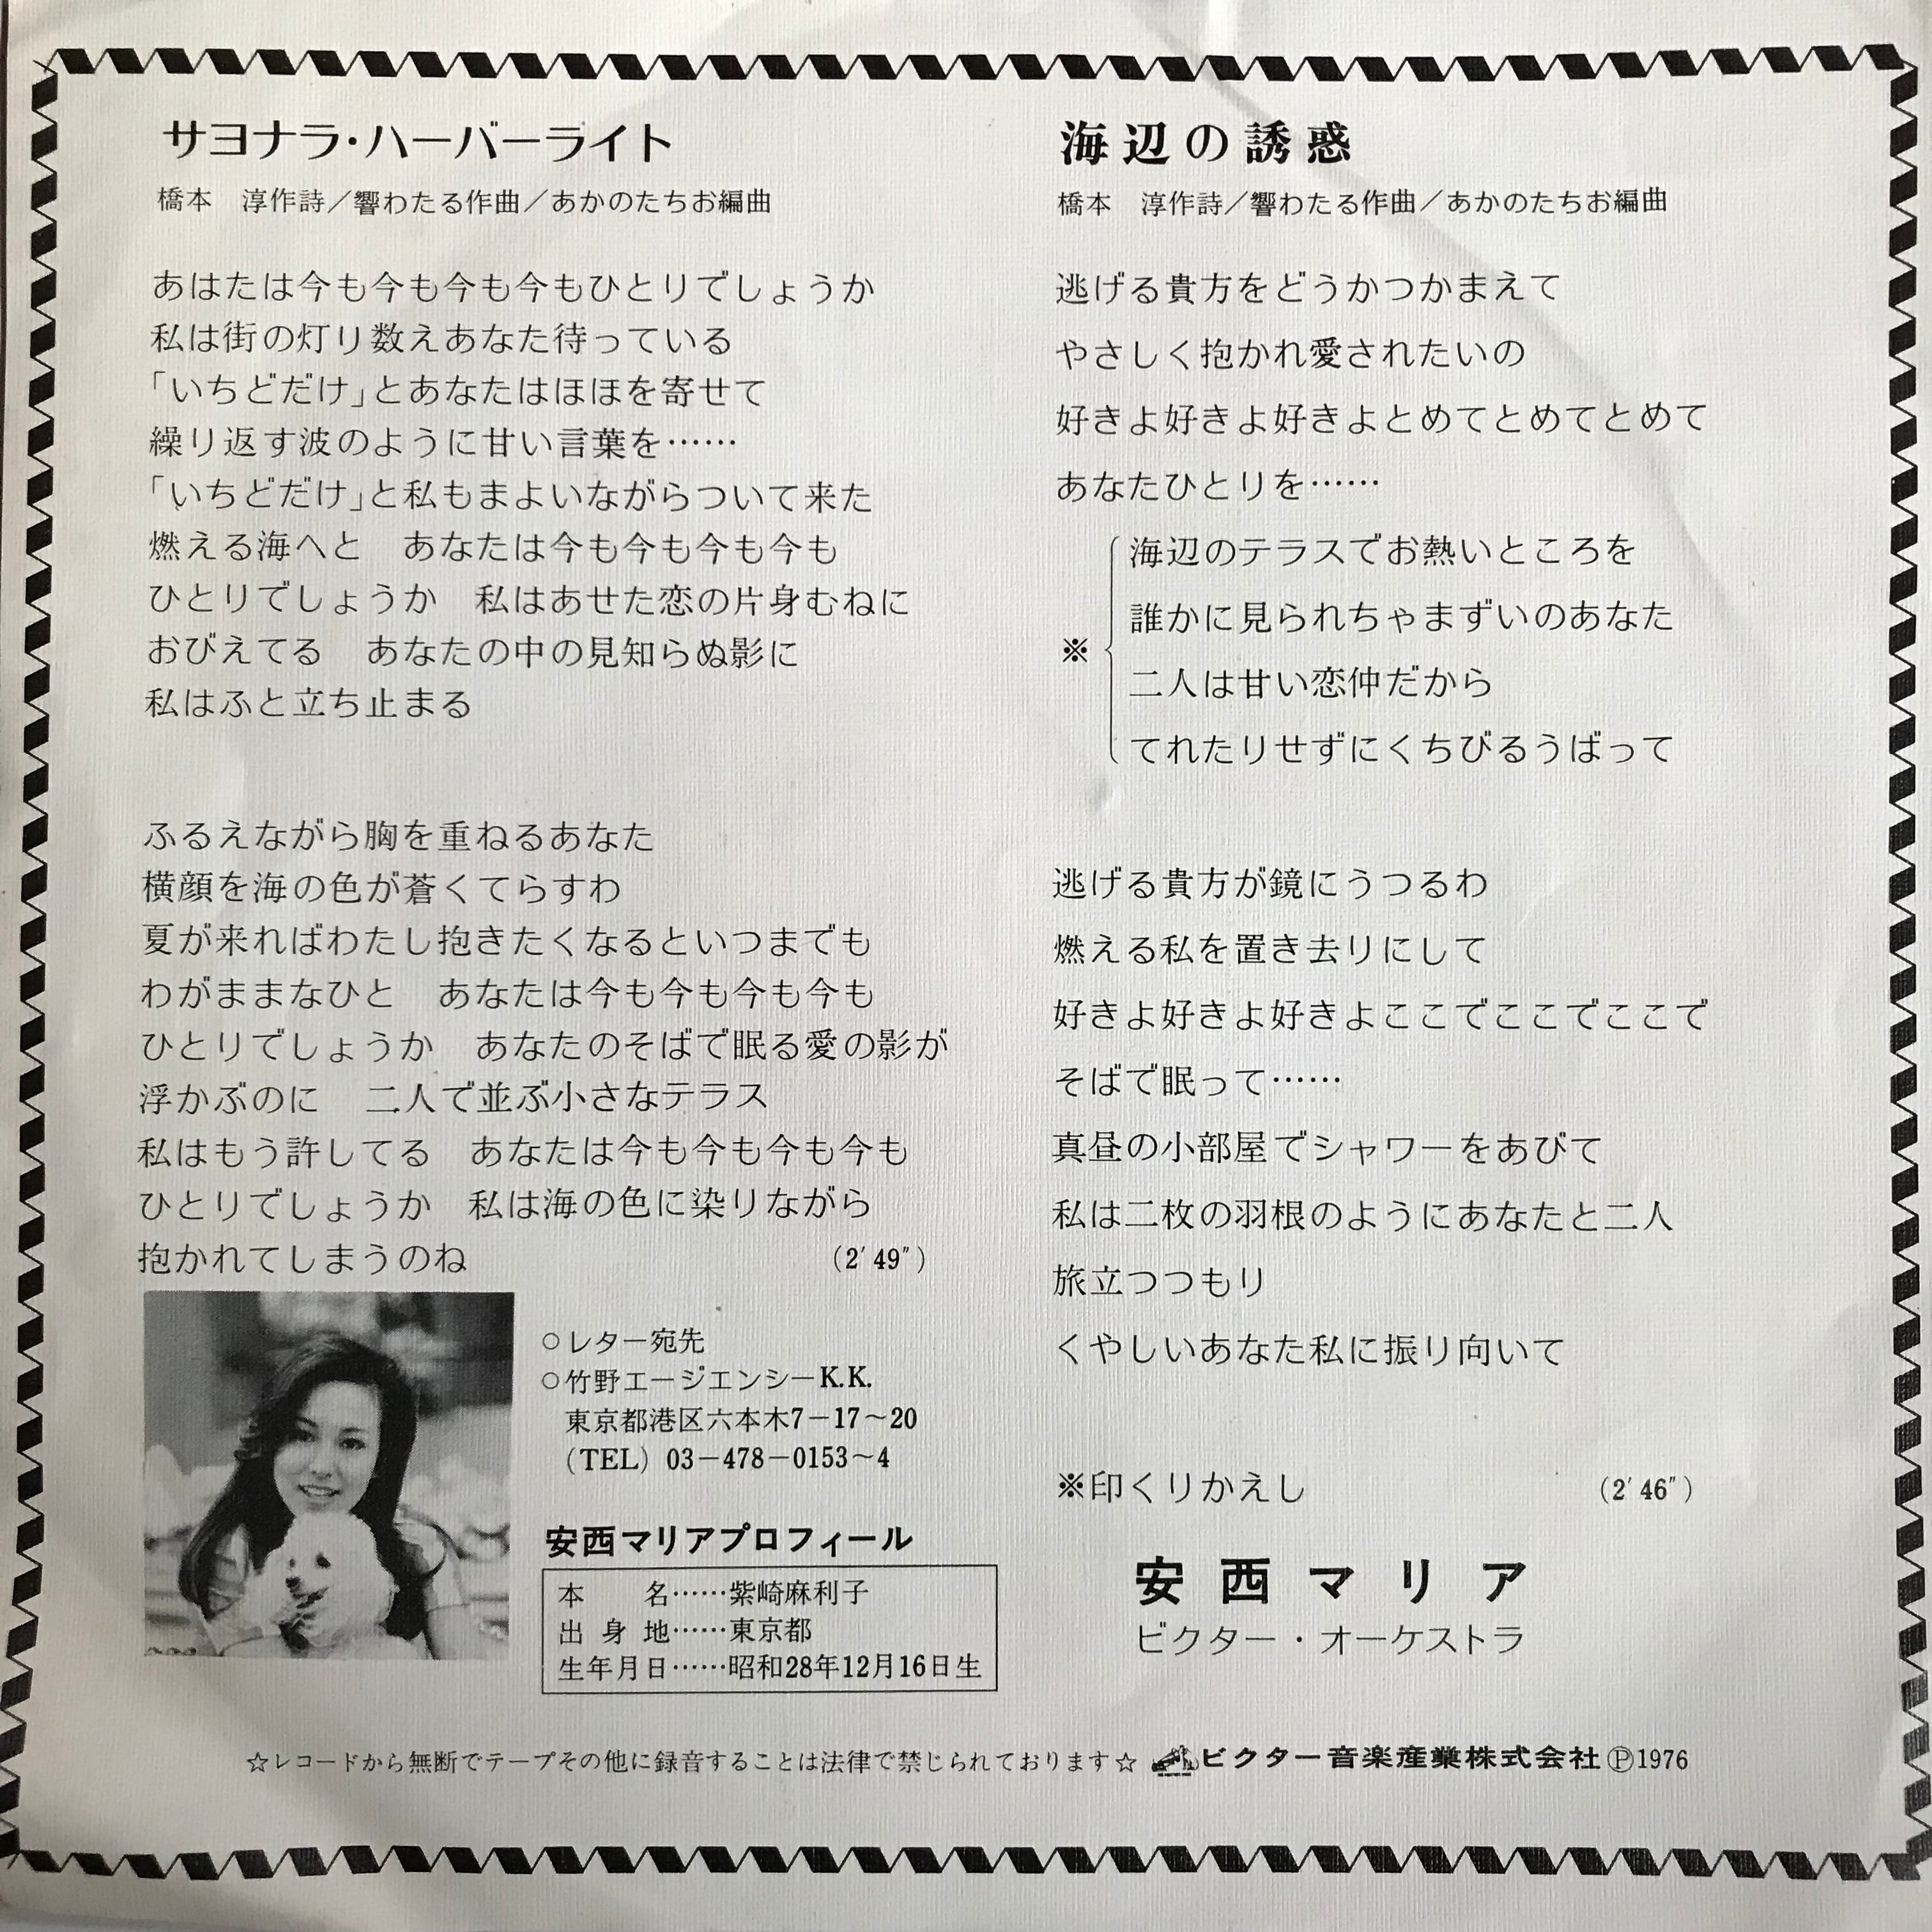 サヨナラ・ハーバーライト
橋本　淳作詩／響わたる作曲／あかのたちお編曲
あはたは今も今も今も今もひとりでしょうか
私は街の灯り数えあなた待っている
「いちどだけ」とあなたはほほを寄せて
繰り返す波のように甘い言葉を……
「いちどだけ」と私もまよいながらついて来た
燃える海へと　あなたは今も今も今も今も
ひとりでしょうか　私はあせた恋の片身むねに
おびえてる　あなたの中の見知らぬ影に
私はふと立ち止まる
ふるえながら胸を重ねるあなた
横顔を海の色が蒼くてらすわ
夏が来ればわたし抱きたくなるといつまでも
わがままなひと　あなたは今も今も今も今も
ひとりでしょうか　あなたのそばで眠る愛の影が
浮かぶのに　二人で並ぶ小さなテラス
私はもう許してる　あなたは今も今も今も今も
ひとりでしょうか　私は海の色に染りながら
抱かれてしまうのね　（2′49″）
○レター宛先
○竹野エージエンシーK.K.
東京都港区六本木7－17～20
（TEL）03－478－0153～4
安西マリアプロフィール
本　　名……紫崎麻利子
出 身 地……東京都
生年月日……昭和28年12月16日生
海辺の誘惑
橋本　淳作詩／響わたる作曲／あかのたちお編曲
逃げる貴方をどうかつかまえて
やさしく抱かれ愛されたいの
好きよ好きよ好きよとめてとめてとめて
あなたひとりを……
海辺のテラスでお熱いところを
誰かに見られちゃまずいのあなた
※
二人は甘い恋仲だから
てれたりせずにくちびるうばって
逃げる貴方が鏡にうつるわ
燃える私を置き去りにして
好きよ好きよ好きよここでここでここで
そばで眠って……
真昼の小部屋でシャワーをあびて
私は二枚の羽根のようにあなたと二人
旅立つつもり
くやしいあなた私に振り向いて
※印くりかえし　（2′46″）
安西マリア
ビクター・オーケストラ
☆レコードから無断でテープその他に録音することは法律で禁じられております☆ ビクター音楽産業株式会社Ⓟ1976